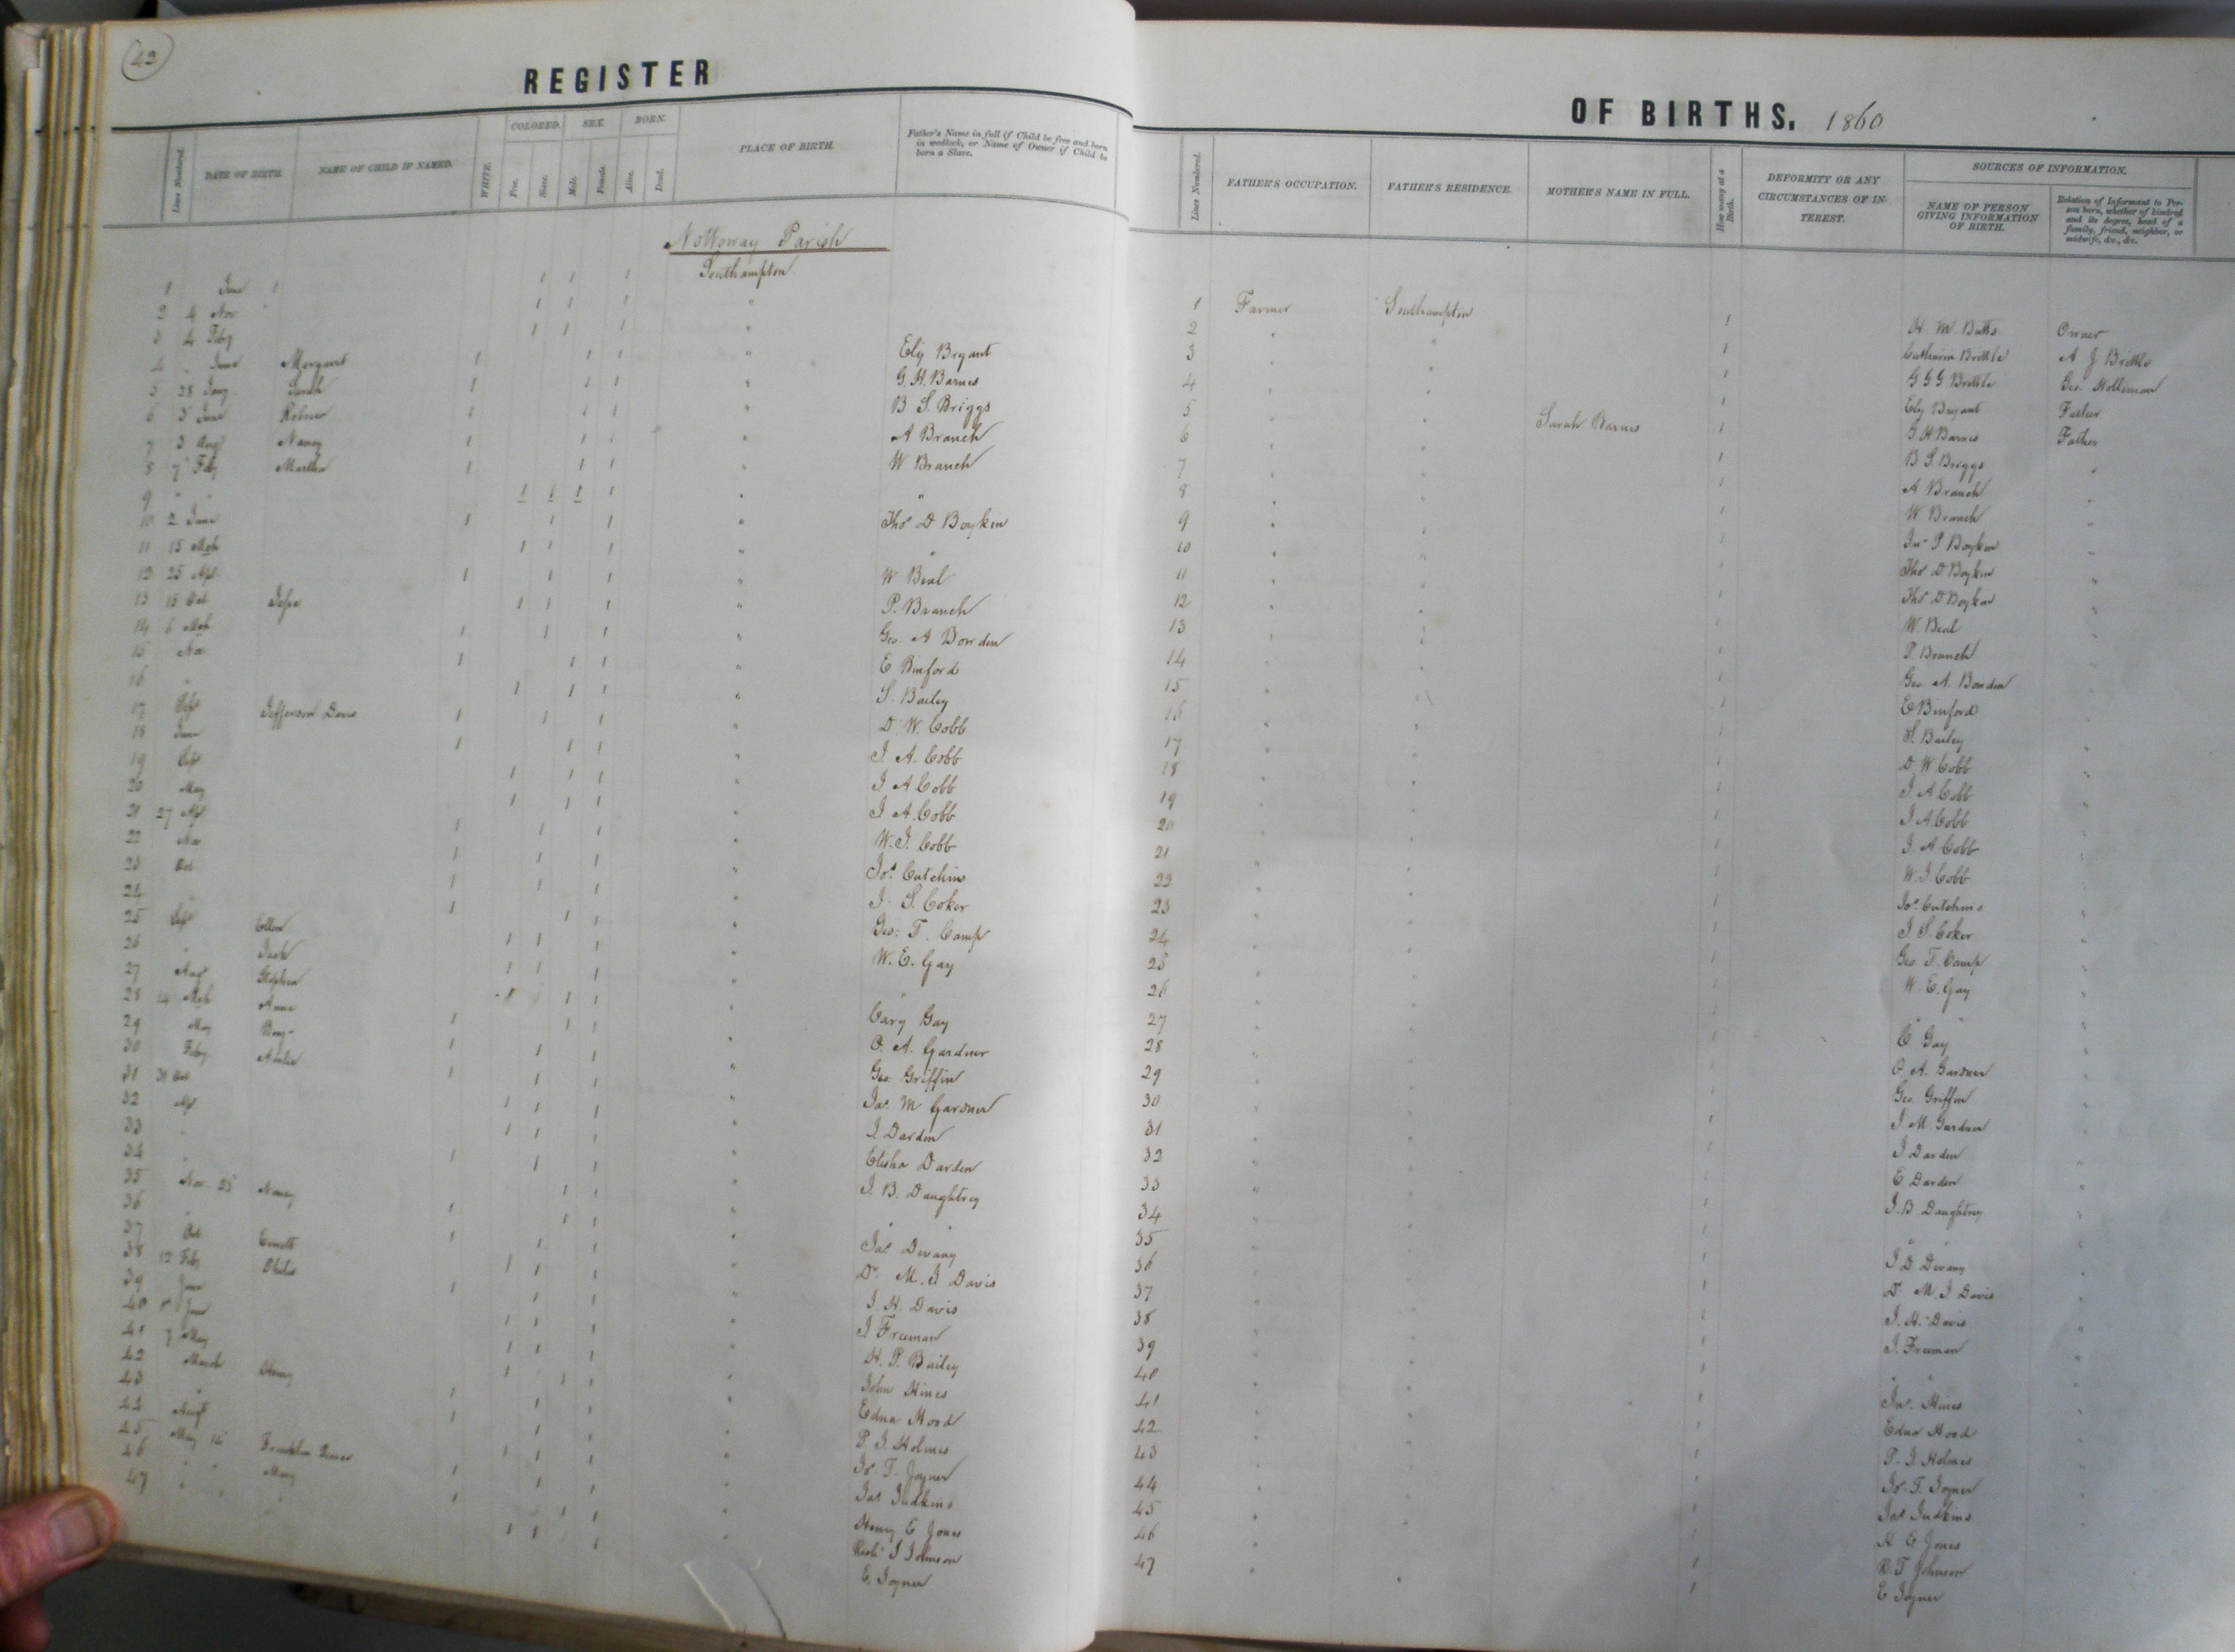 42
REGISTER
Lines Numbered. DATE OF BIRTH. NAME OF CHILD IF NAMED. WHITE. COLORED. Free. Slave. SEX. Male. Female. BORN. Alive. Dead. PLACE OF BIRTH. Father's Name in full if Child be free and born in wedlock, or Name of Owner if Child be born a Slave.
Nottoway Parish
1 June 1 Southampton
2 4 Nov
3 4 Feby
4 June Margaret Ely Bryant
5 28 Jany Sarah G. H. Barnes
6 5 June B. S. Briggs
7 3 Aug Nancy A Branch
8 7 Feby Martha W Branch
9 " "
10 2 June Thos D Boykin
11 15 Mch "
12 25 Apl W Beal
13 15 Oct P. Branch
14 6 Mch Geo. A Bowden
15 Nov E Binford
16 " S. Bailey
17 Sept Jefferson Davis D. W. Cobb
18 June J. A. Cobb
19 Sept J A Cobb
20 May J A. Cobb
21 27 Apl W. J. Cobb
22 Nov Jos. Cutchins
23 Oct J. S. Coker
24 Geo: F. Camp
25 Sept Ellen W. E. Gay
26 " Jack "
27 Aug Stephen Cary Gay
28 14 Mch Anne O. A. Gardner
29 May Boy- Geo. Griffin
30 Feby Jas. M Gardner
31 31 Oct J Darden
32 Apl Elisha Darden
33 J. B. Daughtrey
34 "
35 Nov 25 Nancy Jas. Devany
36 Dr. M. J Davis
37 Oct J. H. Davis
38 12 Feby J Freeman
39 June H. P. Bailey
40 8 June John Hines
41 7 May Edna Hood
42 March Henry P. J. Holmes
43 " Jo. T. Joyner
44 Augt Jas Judkins
45 May Henry E Jones
46 " " Mary Richd J Johnson
47 E. Joyner
OF BIRTHS. 1860
Lines Numbered. FATHER'S OCCUPATION. FATHER'S RESIDENCE. MOTHER'S NAME IN FULL. How many at a Birth. DEFORMITY OR ANY CIRCUMSTANCES OF INTEREST. SOURCES OF INFORMATION. NAME OF PERSON GIVING INFORMATION OF BIRTH. Relation of Informant to Person born, whether of kindred and its degree, head of a family, friend, neighbor, or midwife, &c., &c.
1 Farmer Southampton 1 H. M. Butts Owner
2 " " 1 Catharin Brittle A J Brittle
3 " " 1 G G G Brittle Geo. Holleman
4 " " 1 Ely Bryant Father
5 " " Sarah Barnes 1 G. H. Barnes Father
6 " " 1 B S. Briggs "
7 " " 1 A Branch "
8 " " 1 W Branch "
9 " " 1 Jno P Boykin "
10 " " 1 Thos D Boykin "
11 " " 1 Thos D Boykin "
12 " " 1 W. Beal "
13 " " 1 P. Branch "
14 " " 1 Geo. A. Bowden "
15 " " 1 E Binford "
16 " " 1 S. Bailey "
17 " " 1 D W Cobb "
18 " " 1 J. A Cobb "
19 " " 1 J A Cobb "
20 " " 1 J. A Cobb "
21 " " 1 W. J. Cobb "
22 " " 1 Jos. Cutchins "
23 " " 1 J. S. Coker "
24 " " 1 Geo F. Camp "
25 " " 1 W. E. Gay "
26 " " 1 " "
27 " " 1 C Gay "
28 " " 1 O. A. Gardner "
29 " " 1 Geo. Griffin "
30 " " 1 J. M. Gardner "
31 " " 1 J Darden "
32 " " 1 E Darden "
33 " " 1 J. B Daughtrey "
34 " " 1 " "
35 " " 1 J D Devany "
36 " " 1 Dr M. J. Davis "
37 " " 1 J. H. Davis "
38 " " 1 J. Freeman "
39 " " 1 " "
40 " " 1 Jno. Hines "
41 " " 1 Edna Hood "
42 " " 1 P. J. Holmes "
43 " " 1 Jo. T. Joyner "
44 " " 1 Jas Judkins "
45 " " 1 H E Jones "
46 " " 1 R. T Johnson
47 " " 1 E Joyner